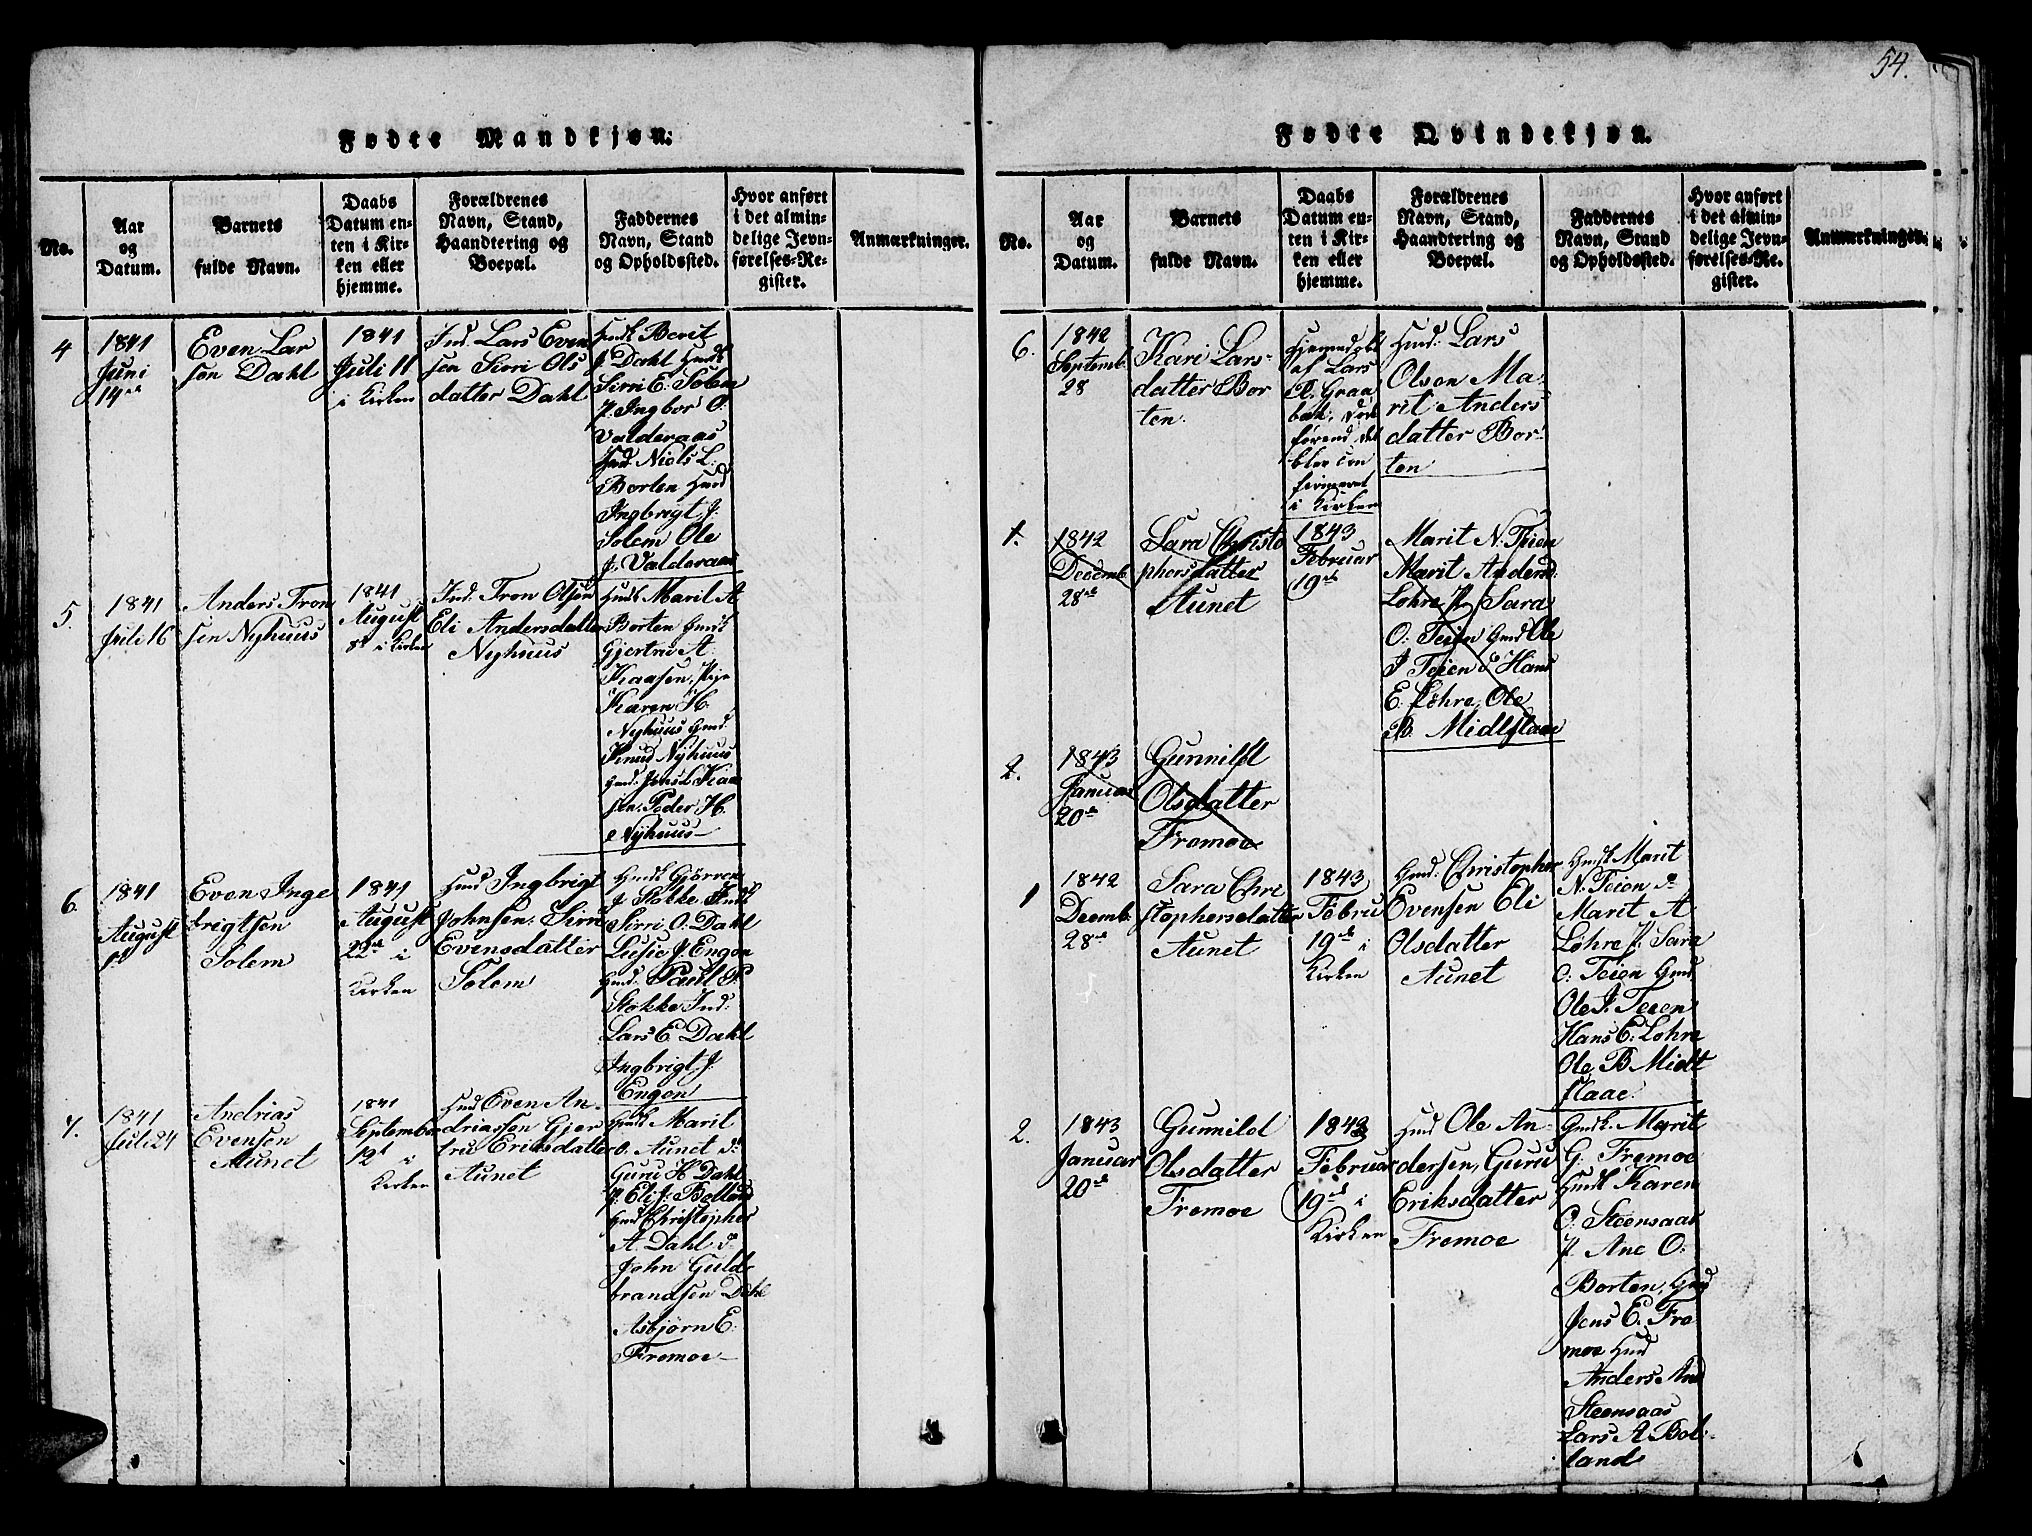 54.
Fødte Mandkjøn.
No.
Aar
og
Datum.
Barnets
fulde Navn.
Daabs
Datum en-
ten i Kir-
ken eller
hjemme.
Forældrenes
Navn, Stand,
Haandtering og
Boepæl.
Faddernes
Navn, Stand
og Opholdssted.
Hvor anført
i det almin-
delige Jevn-
førelses-Re-
gister.
Anmærkninger.
4
1841
Juni
14de
Even Lar
sen Dahl
1841
Juli 11
i Kirken
Ind. Lars Even
sen Sirri Ols
datter Dahl
Husk Berit
J. Dahl Husk
Sirri E. Solem
P. Ingbor O.
Valderaas
Hud. Niels L.
Borten Husd
Ingbrigt J:
Solem Ole
J. Valderaas
5.
1841
Juli 16
Anders Tron
sen Nyhuus
1841
August
8de i Kirken
Ind. Tron Olsen
Eli Andersdatter
Nyhuus
Husk Marit A
Borten Husk
Gjertru A.
Kaasen, Pige
Karen H.
Nyhuus Hmd.
Knud Nyhuus
Hmd. Jens L Kaa
sen. Peder H.
Nyhuus
6.
1841
August
1de
Even Inge
brigtsen
Solem
1841
August
22de i
Kirken
Husd Ingbrigt
Johnsen. Sirru
Evensdatter
Solem
Husk Gjörren
J Stokke Ind
Sirri O. Dahl
Lusie J. Engen
Hmd. Paul P.
Stokke Ind:
Lars E. Dahl
Ingbrigt J.
Engen
7.
1841
Juli 24
Andrias
Evensen
Aunet
1841
September
12t i
Kirken
Husd Even An-
driassen Gjer
tru Eriksdatter
Aunet
Husk Marit
O. Aunet do
Guru H Dahl
P. Eli J. Bolland
Husd Christopher
A. Dahl do
John Guld-
brandsen Dahl
Asbjørn E.
Fremoe
Fødte Qvindekjøn.
No.
Aar
og
Datum.
Barnets
fulde Navn.
Daabs
Datum en-
ten i Kir-
ken eller
hjemme.
Forældrenes
Navn, Stand,
Haandtering og
Boepæl.
Faddernes
Navn, Stand
og Opholdssted.
Hvor anført
i det almin-
delige Jevn-
førelses-Re-
gister.
Anmærkninger.
6.
1842
Septemb.
28
Kari Lars-
datter Bor
ten.
Hjemmedøbt
af Lars
Graa
bæk, død
førend det
blev con
firmeret
i Kirken
Husd. Lars
Olsen Ma-
rit Anders
datter Bor-
ten
1.
1842
Decemb.
28de
Sara Christo
phersdatter
Aunet
1843
Februar
19de
Marit N. Teien
Marit Andersd
Løhre P. Sara
O. Teien Husd Ole
J Teien & Hans
E. Løhre, Ole
B. Midtflaae
2.
1843
Januar
20de
Gunnild
Olsdatter
Fremoe
1
1842
Decemb.
28de
Sara Chri
stophersdatter
Aunet
1843
Febru
19de i
Kirken
Husd. Christopher
Evensen Eli
Olsdatter
Aunet
Husk Marit
N. Teien do
Marit A
Løhre P. Sara
O. Teien Husd
Ole J. Teien
Hans E. Løhre
Ole B Midt
flaae.
2.
1843
Januar
20de
Gunnild
Olsdatter
Fremoe
1843
Februar
19de i
Kirken
Husd Ole An-
dersen, Guru
Eriksdatter
Fremoe
Husk. Marit
G. Fremoe
Husk Karen
O. Steensaas
P. Ane O.
Borten, Husd
Jens E. Fre
moe Husd
Anders And
Steensaas
Lars A Bol-
land